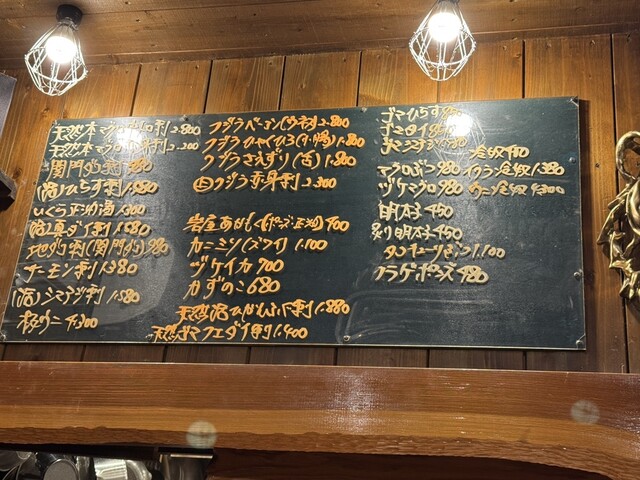 天然本マグロ中トロ刺 2.800
天然本マグロ赤身刺 2.200
関門ダコ刺 980
(活)ひらす刺 1.580
いくら正油漬 1.300
(活)真ダイ刺 1.580
地ダコ刺(関門ダコ) 980
サーモン刺 1.380
(活)シマアジ刺 1.580
板ウニ 4.300
クジラベーコン(ウネス) 2.800
クジラひゃくひろ(小腸) 1.800
クジラさえずり(舌) 1.800
上クジラ赤身刺 2.300
岩屋あかもく(ポン酢・正油) 400
カニミソ(ズワイ) 1.100
ヅケイカ 700
かずのこ 680
天然活ひがんふぐ刺 1.880
天然ゴマフエダイ刺 1.400
ゴマひらす
ゴマタイ
マグロぶつ 980 イクラ 1.380
ヅケマグロ 980 ウニ 4.300
明太子 450
炙り明太子 450
1.100
フラゲポーズ 480